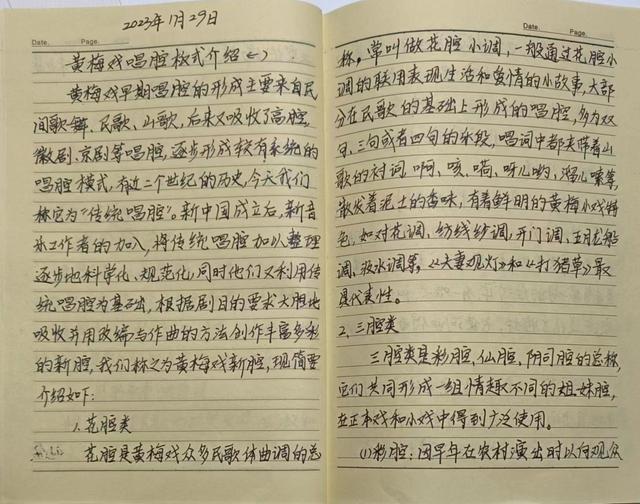 2023年11月29日
Date.
Page.
黄梅戏唱腔格式介绍（一）
黄梅戏早期唱腔的形成主要来自民
间歌舞、民歌、山歌，后来又吸收了高腔，
徽剧、京剧等唱腔，逐步形成较有系统的
唱腔模式，有近二个世纪的历史，今天我们
称它为“传统唱腔”。新中国成立后，新音
乐工作者的加入，将传统唱腔加以整理
逐步地科学化、规范化，同时他们又利用传
统唱腔为基础，根据剧目的要求大胆地
吸收并用改编与作曲的方法创作丰富多彩
的新腔，我们称之为黄梅戏新腔，现简要
介绍如下：
1、花腔类
花腔是黄梅戏众多民歌体曲调的总
Date.
Page.
称，常叫做花腔小调，一般通过花腔小
调的联用表现生活和爱情的小故事，大部
分在民歌的基础上形成的唱腔，多为双
句、三句或者四句的乐段，唱词中都夹带着山
歌的衬词，啊、咳、嗬、呀儿哟、
嗦等，
散发着泥土的香味，有着鲜明的黄梅小戏特
色。如对花调、纺线纱调，开门调、五月龙船
调、汲水调等，《夫妻观灯》和《打猪草》最
具代表性。
2、三腔类
三腔类是彩腔、仙腔、阴司腔的总称，
它们共同形成一组情趣不同的姐妹腔，
在正本戏和小戏中得到广泛使用。
（1）彩腔：因早年在农村演出时以向观众